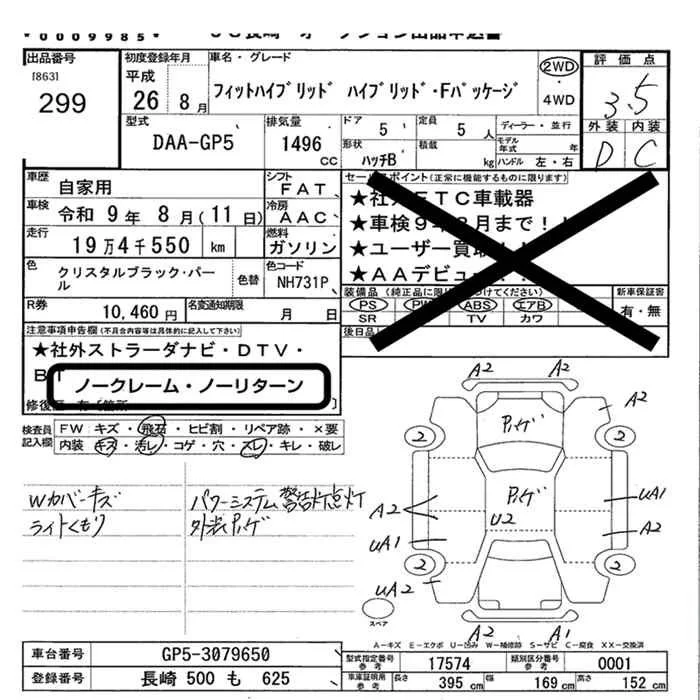 *0009985*
出品番号
[863]
299
初度登録年月
平成
26年 8月
車名・グレード
フィットハイブリッド ハイブリッド・Fパッケージ
2WD
4WD
評価点
3.5
外装 内装
D C
型式
DAA-GP5
排気量
1496
CC
ドア
5
定員
5人
ディーラー・並行
形状
ハッチB
積載
kg
モデル年式
年
ハンドル 左・右
車歴
自家用
シフト
FAT
車検
令和 9年 8月(11日)
冷房
AAC
走行
19万4千550 km
燃料
ガソリン
色
クリスタルブラック・パール
色替
色コード
NH731P
R券
10,460円
名変通知期限
月 日
セールスポイント(正常に機能するものに限ります)
★社外ETC車載器
★車検9年8月まで!!
★ユーザー買取!!
★AAデビュー!!
PS PW ABS エアB
SR TV カワ
新車保証書
有・無
後日品
注意事項申告欄(不具合内容等は具体的に記入して下さい)
★社外ストラーダナビ・DTV・
BT
ノークレーム・ノーリターン
検査員記入欄
FW キズ・飛石・ヒビ割・リペア跡・×要
内装 キズ・汚レ・コゲ・穴・スレ・キレ・破レ
Wカバーキズ
ライトくもり
パワーシステム警告灯点灯
外装ハゲ
A2
A2
A2
ハゲ
2
2
ハゲ
U2
A2
UA1
UA1
A2
2
2
UA2
スペア
A2
A1
A－キズ E－エクボ U－凹み W－補修跡 S－サビ C－腐食 XX－交換済
車台番号
GP5-3079650
登録番号
長崎 500 も 625
型式指定番号
参考
17574
類別区分番号
参考
0001
車庫証明用
参考
長さ
395 cm
幅
169 cm
高さ
152 cm